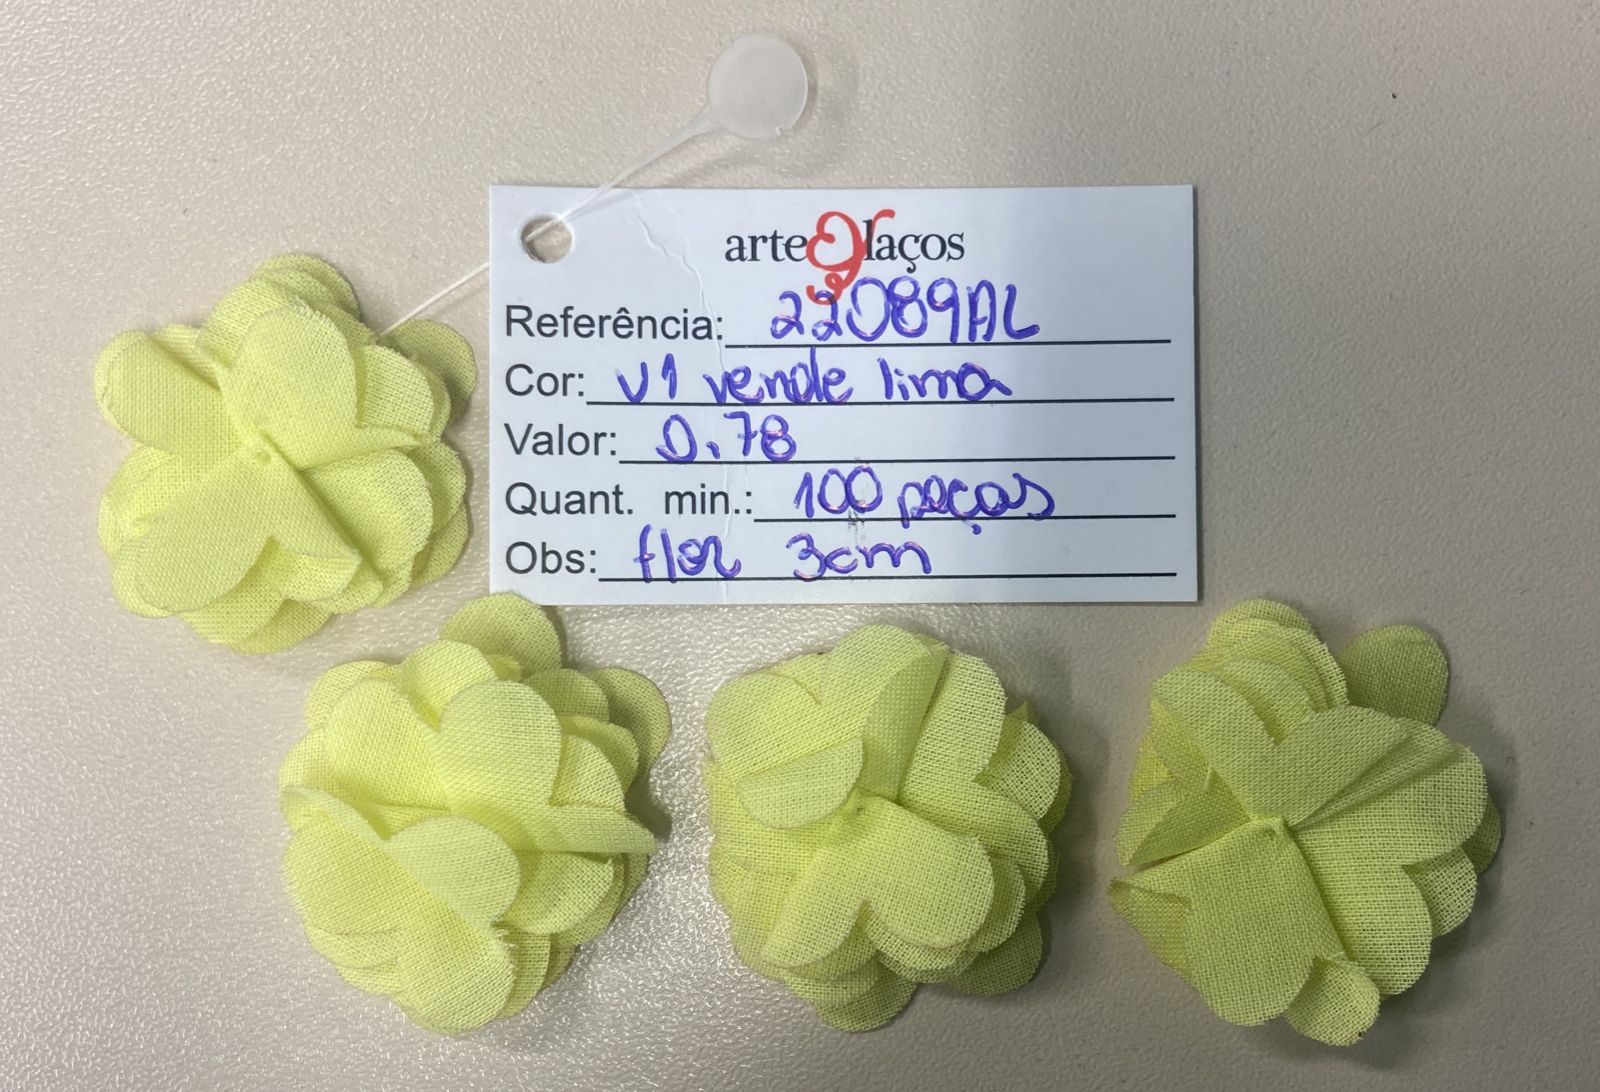 arte laços
Referência: 22089AL
Cor: V1 verde lima
Valor: 0.78
Quant. min.: 100 peças
Obs: flor 3cm